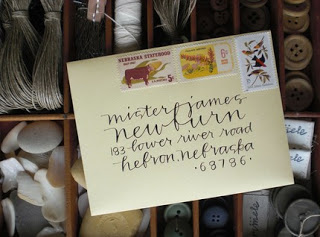 NEBRASKA STATEHOOD
5¢
6¢
mister james
newburn
193 lower river road
hebron, nebraska
• 68786 •